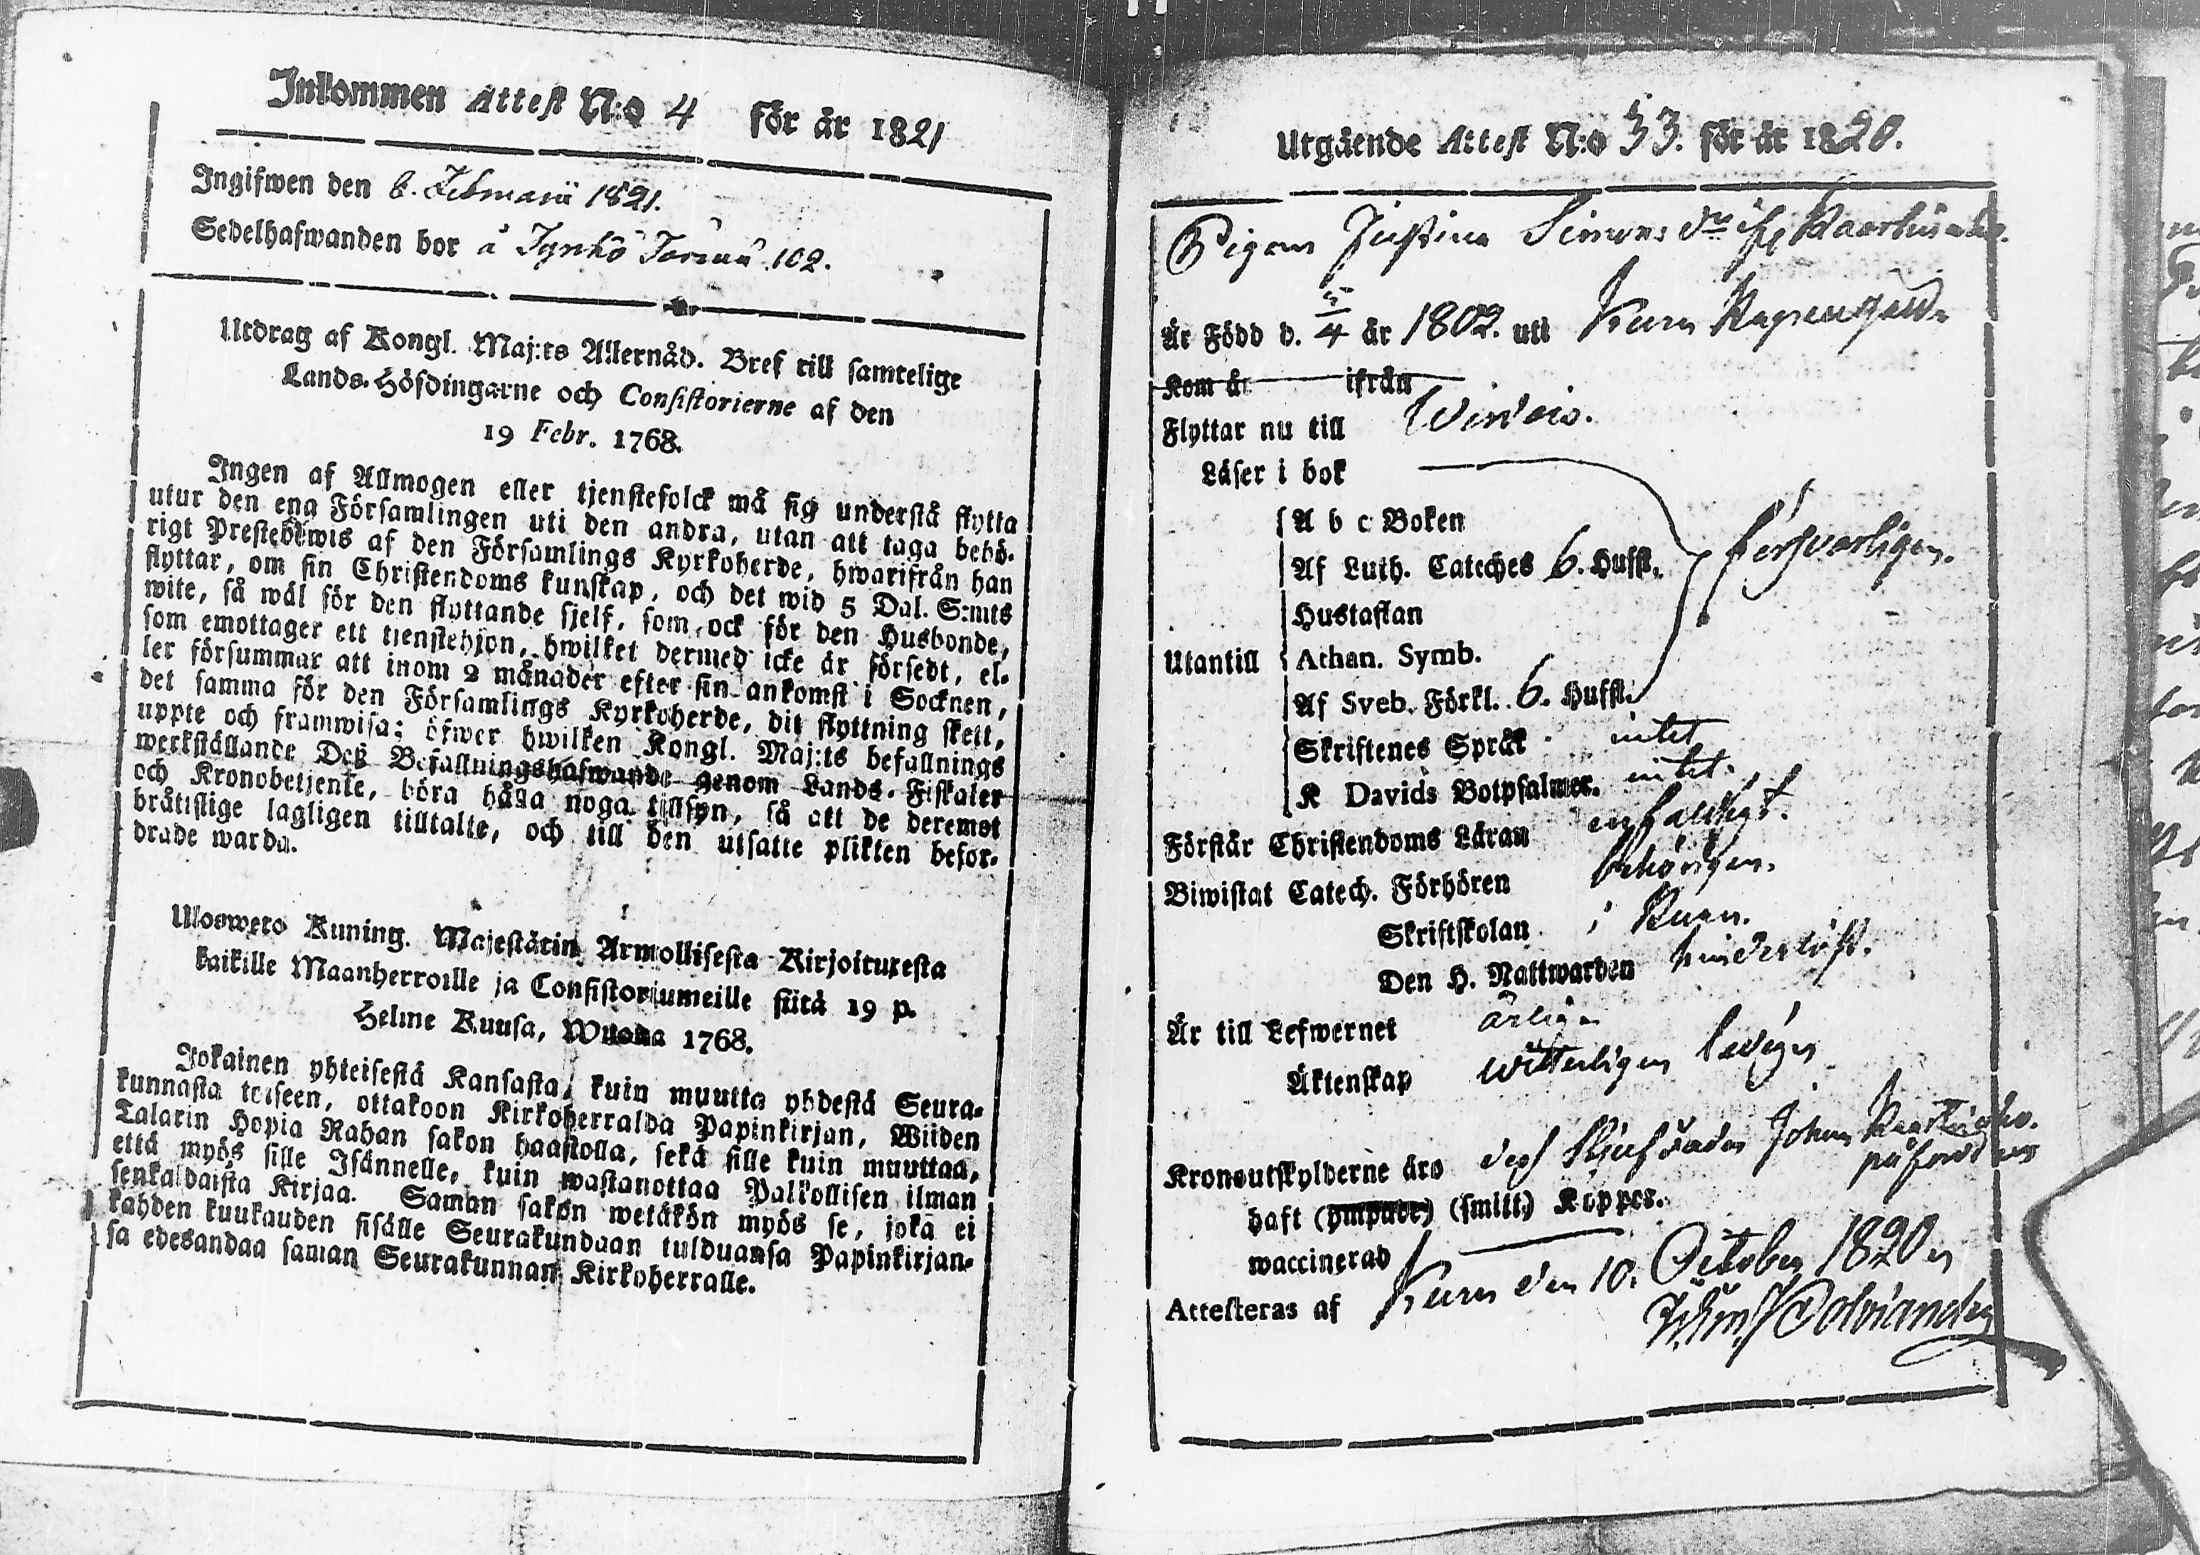 Inkommen Attest N:o 4 för år 1821
Ingifwen den 6. Februarii 1821.
Sedelhafwanden bor å Tyrkö 102.
Utdrag af Kongl. Maj:ts Allernåd. Bref till samtelige
Lands-Höfdingarne och Consistorierne af den
19 Febr. 1768.
Ingen af Allmogen eller tjenstefolck må sig understå flytta
utur den ena Församlingen uti den andra, utan att taga behö-
rigt Prestebewis af den Församlings Kyrkoherde, hwarifrån han
flyttar, om sin Christendoms kunskap, och det wid 5 Dal. S:mts
wite, så wäl för den flyttande sjelf, som ock för den Husbonde,
som emottager ett tjenstehjon, hwilket dermed icke är försedt, el-
ler försummar att inom 2 månader efter sin ankomst i Socknen,
det samma för den Församlings Kyrkoherde, dit flyttning skett,
uppte och framwisa; öfwer hwilken Kongl. Maj:ts befallnings
werkställande Deß Befallningshafwande genom Lands-Fiskaler
och Kronobetjente, böra hålla noga tillsyn, så att de deremot
brätislige lagligen tilltalte, och till den utsatte plikten befor-
drade warda.
Uloswero Kuning. Majestätin Armollisesta Kirjoituxesta
kaikille Maanherroille ja Consistoriumeille siitä 19 p.
Helme Kuusa, Wuona 1768.
Jokainen yhteisestä Kansasta, kuin muutta yhdestä Seura-
kunnasta toiseen, ottakoon Kirkoherralda Papinkirjan, Wiiden
Talarin Hopia Rahan sakon haastolla, sekä sille kuin muuttaa,
että myös sille Isännelle, kuin wastanottaa Palkollisen ilman
senkaldaista Kirjaa. Saman sakon wetäkön myös se, joka ei
kahden kuukauden sisälle Seurakundaan tulduansa Papinkirjan-
sa edesandaa saman Seurakunnan Kirkoherralle.
Utgående Attest N:o 33. för år 1820.
Pigan Justina Simons dr
Är Född d. 5/4 år 1802. uti Kumo
Kom år ifrån
Flyttar nu till
Läser i bok
A b c Boken
Af Luth. Cateches 6. Hufst. försvarligen.
Hustaflan
Utantill Athan. Symb.
Af Sveb. Förkl. 6. Hufst.
Skriftenes Språk intet
K Davids Botpsalmer. intet.
Förstår Christendoms Läran enfaldigt.
Biwistat Catech. Förhören behörigen.
Skriftskolan i Kumo.
Den H. Nattwarden hinderlöst.
Är till Lefwernet ärlig
Äktenskap witterligen ledig
Kronoutskylderne äro Johan påförd
haft (ympade) (smitt.) Koppor.
waccinerad
Attesteras af Kumo den 10. October 1820